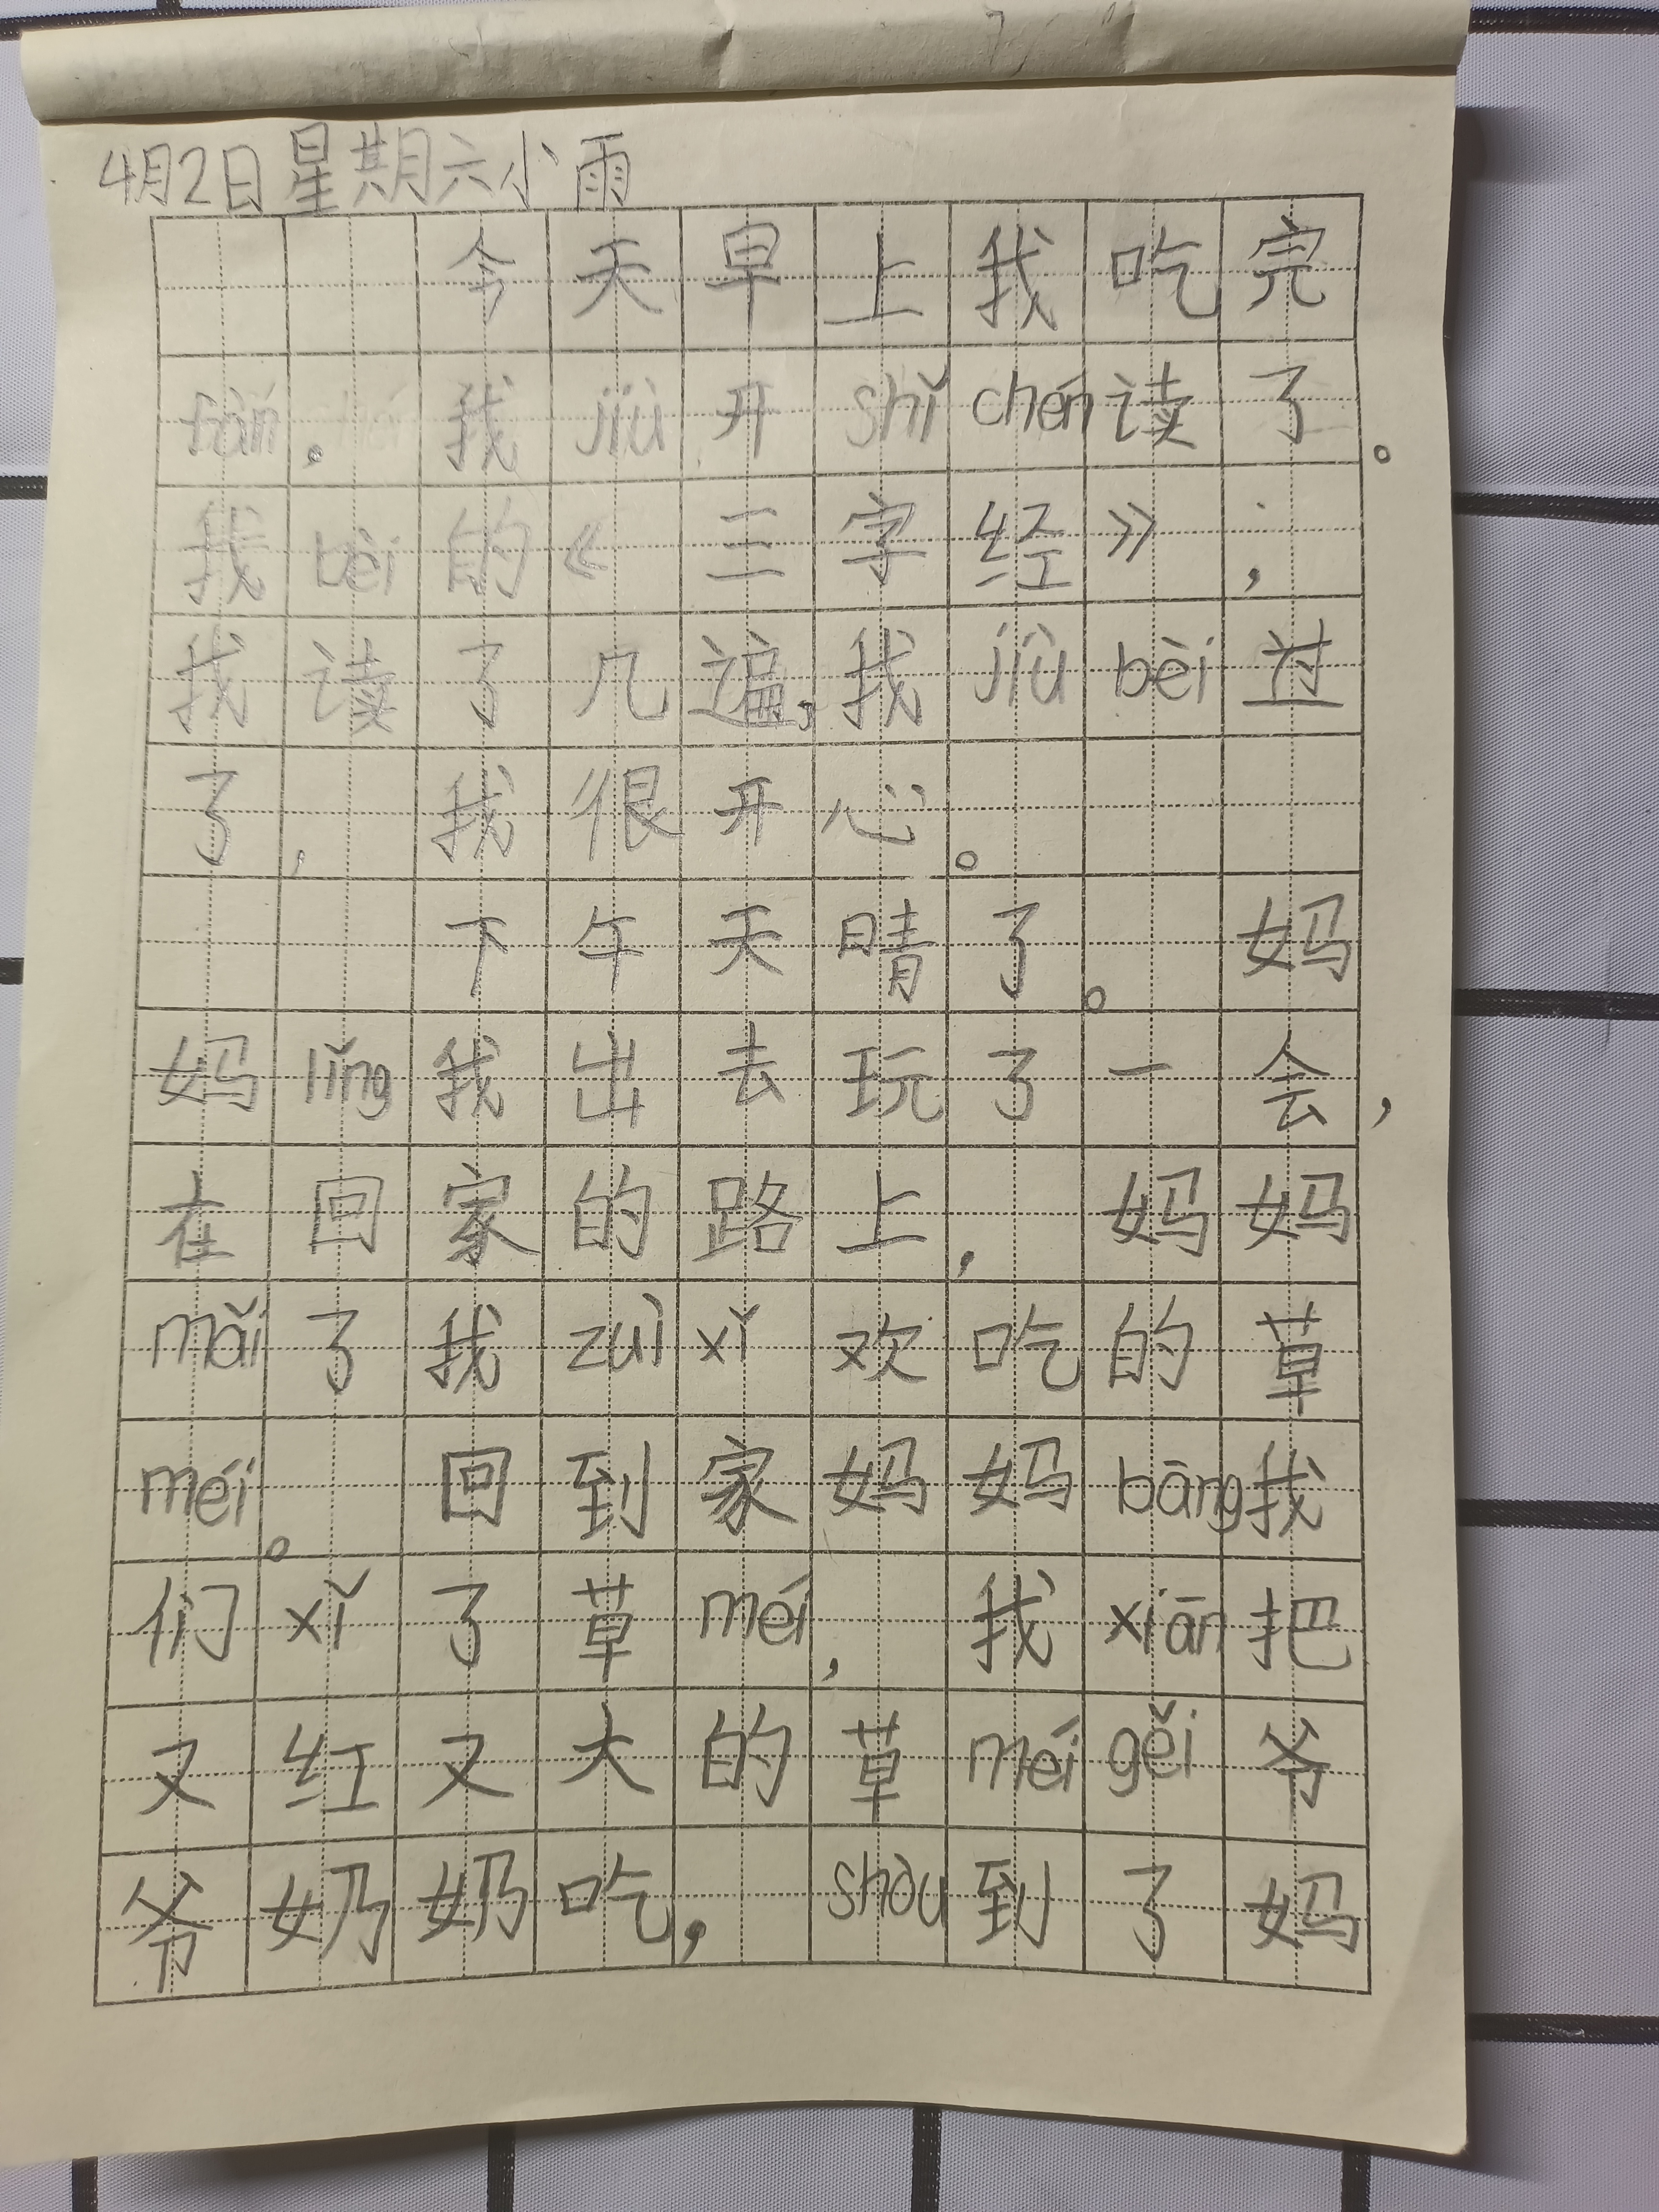 4月2日星期六小雨
今天早上我吃完
fàn。我jiù开shǐchén读了。
我bèi的《三字经》；
我读了几遍，我jiùbèi过
了，我很开心。
下午天晴了。妈
妈lǐng我出去玩了一会，
在回家的路上，妈妈
mǎi了我zuìxǐ欢吃的草
méi。回到家妈妈bāng我
们xǐ了草méi，我xiān把
又红又大的草méigěi爷
爷奶奶吃，shòu到了妈